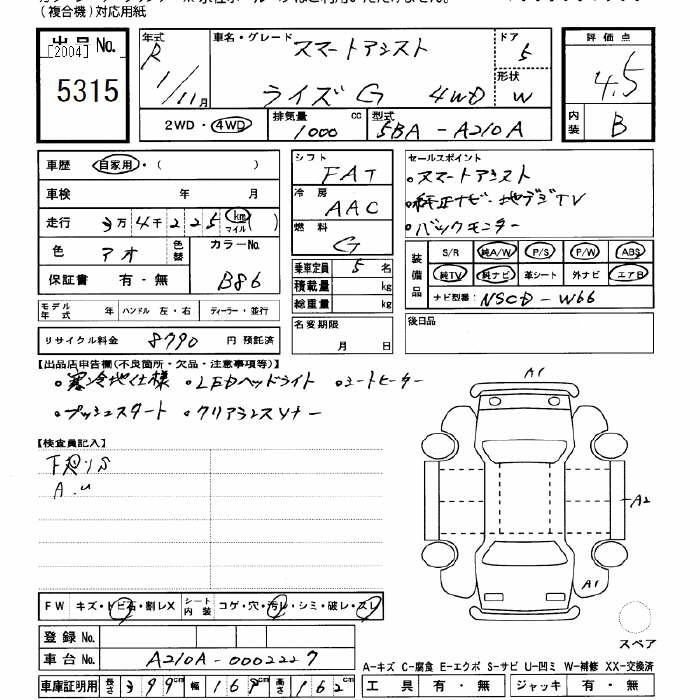 (複合機)対応用紙
出品 No.
[2004]
5315
年式
R 1/11月
車名・グレード
スマートアシスト
ライズ G 4WD
ドア
5
形状
W
評価点
4.5
内装
B
2WD・4WD
排気量 1000 cc
型式 5BA-A210A
車歴 自家用・( )
車検 年 月
走行 3万4千225 km マイル( )
色 アオ
色替
カラーNo. B86
保証書 有・無
シフト FAT
冷房 AAC
燃料 G
乗車定員 5名
積載量 kg
総重量 kg
名変期限 月 日
セールスポイント
・スマートアシスト
・純正ナビ・地デジTV
・バックモニター
装備品
S/R 純A/W P/S P/W ABS
純TV 純ナビ 革シート 外ナビ エアB
ナビ型番: NSCD-W66
後日品
モデル年式 年 ハンドル 左・右 ディーラー・並行
リサイクル料金 8790 円 預託済
【出品店申告欄(不良箇所・欠品・注意事項等)】
・寒冷地仕様 ・LEDヘッドライト ・シートヒーター
・プッシュスタート ・クリアランスソナー
【検査員記入】
A.U
A1
A2
A1
スペア
FW キズ・トビ石・割レX
シート内装 コゲ・穴・汚レ・シミ・破レ・スレ
登録 No.
車台 No. A210A-0002227
車庫証明用 長さ 399cm 幅 169cm 高さ 162cm
A-キズ C-腐食 E-エクボ S-サビ U-凹ミ W-補修 XX-交換済
工具 有・無 ジャッキ 有・無